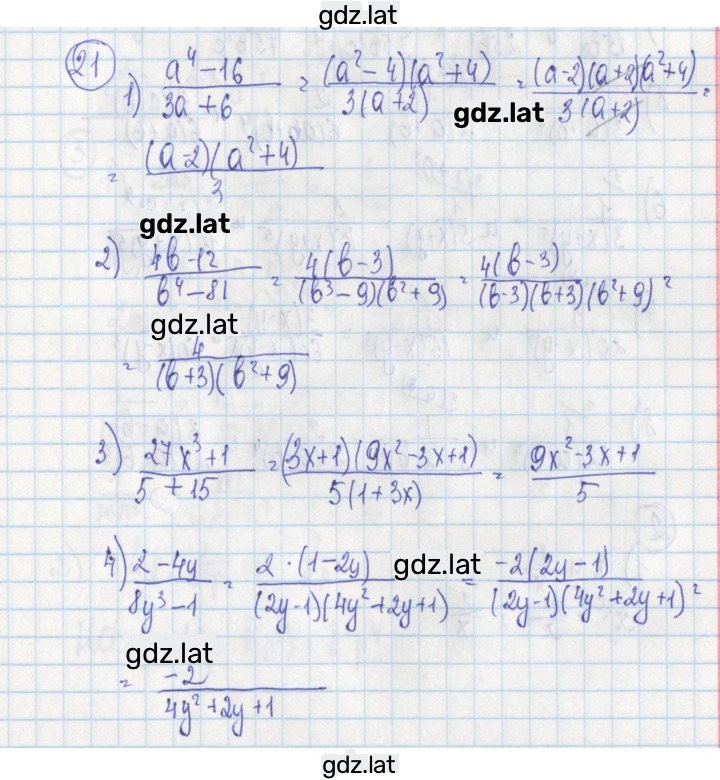 gdz.lat
21
1) (a⁴-16)/(3a+6) = ((a²-4)(a²+4))/(3(a+2)) = ((a-2)(a+2)(a²+4))/(3(a+2)) =
gdz.lat
= ((a-2)(a²+4))/3
gdz.lat
2) (4b-12)/(b⁴-81) = (4(b-3))/((b³-9)(b²+9)) = (4(b-3))/((b-3)(b+3)(b²+9)) =
gdz.lat
= 4/((b+3)(b²+9))
3) (27x³+1)/(5+15) = ((3x+1)(9x²-3x+1))/(5(1+3x)) = (9x²-3x+1)/5
4) (2-4y)/(8y³-1) = (2·(1-2y))/((2y-1)(4y²+2y+1)) = (-2(2y-1))/((2y-1)(4y²+2y+1)) =
gdz.lat
gdz.lat
= (-2)/(4y²+2y+1)
gdz.lat